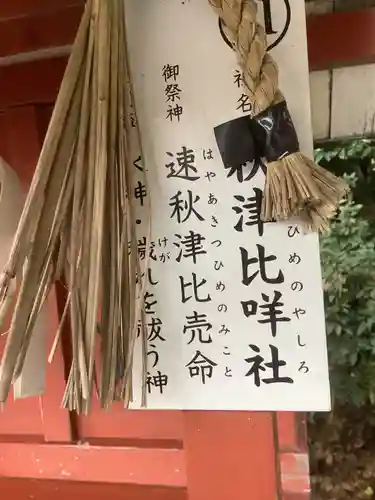 神名
秋津比咩社
ひめのやしろ
御祭神
速秋津比売命
はやあきつひめのみこと
く神・
穢れを祓う神
けが